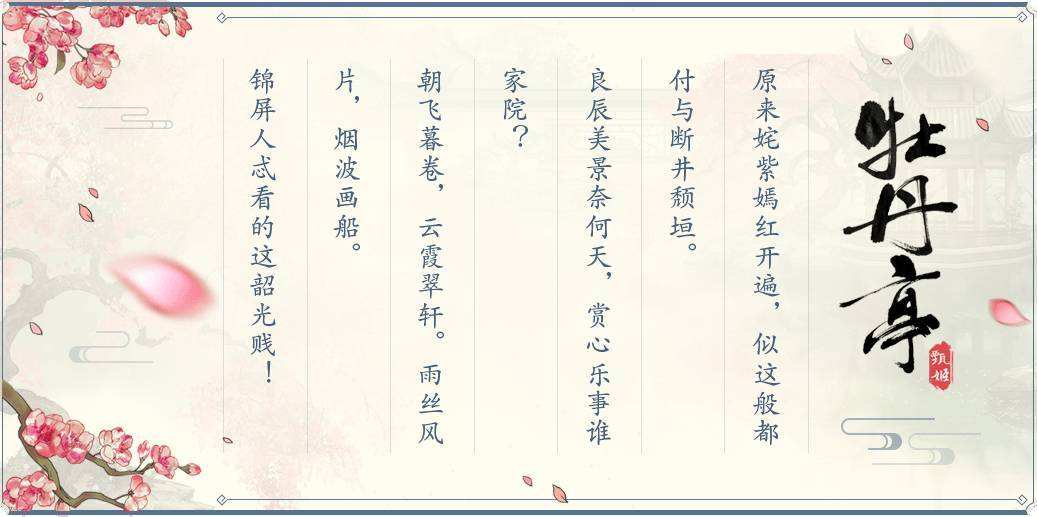 牡丹亭
甄姬
原来姹紫嫣红开遍，似这般都
付与断井颓垣。
良辰美景奈何天，赏心乐事谁
家院？
朝飞暮卷，云霞翠轩。雨丝风
片，烟波画船。
锦屏人忒看的这韶光贱！